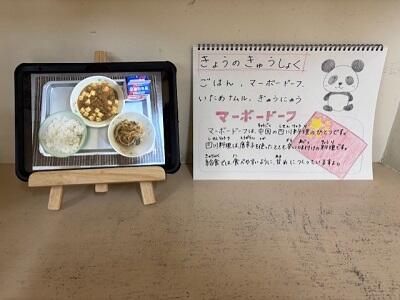 きょうのきゅうしょく
ごはん、マーボードーフ、
いためナムル、ぎゅうにゅう
マーボードーフ
マーボードーフは、中国の四川料理のひとつです。
四川料理は唐辛子を使ったとても辛い味付けの料理です。
給食では食べやすいように、甘めにつくっていますよ。